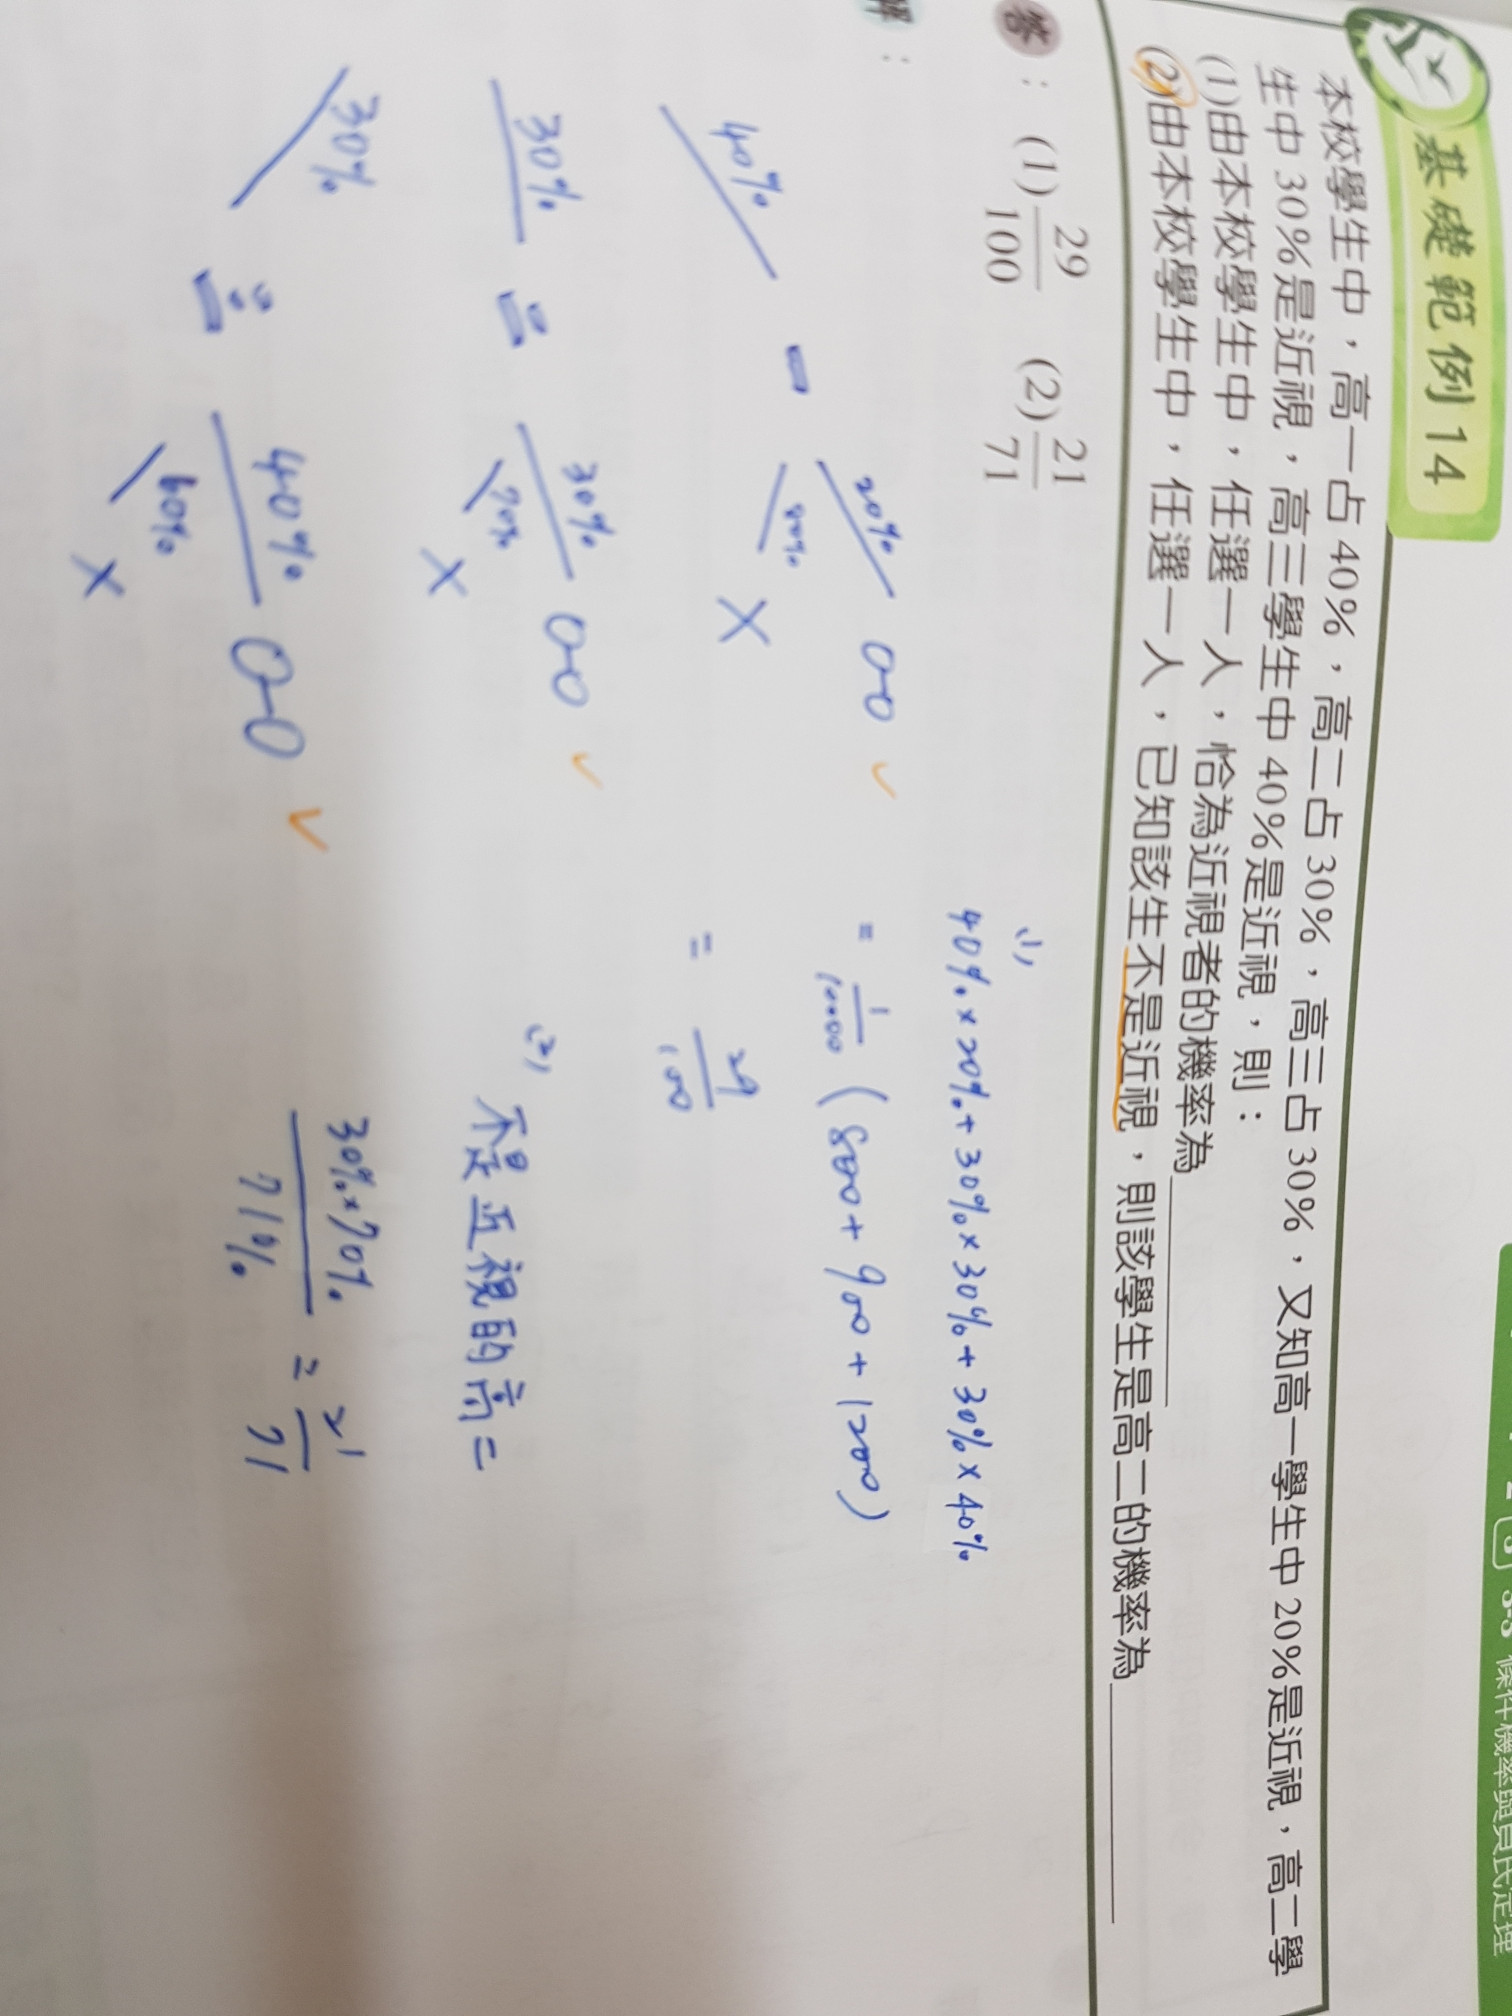 3-3 條件機率與貝氏定理
基礎範例 14
本校學生中，高一占 40%，高二占 30%，高三占 30%，又知高一學生中 20%是近視，高二學
生中 30%是近視，高三學生中 40%是近視，則：
(1)由本校學生中，任選一人，恰為近視者的機率為
(2)由本校學生中，任選一人，已知該生不是近視，則該學生是高二的機率為
答：(1) 29/100 (2) 21/71
：
40% 一 20%
80% ×
30% 二 30%
70% ×
30% 三 40%
60% ×
(1)
40%×20%+30%×30%+30%×40%
= 1/10000 (800+900+1200)
= 29/100
(2)
不是近視的高二
30%×70%/71% = 21/71